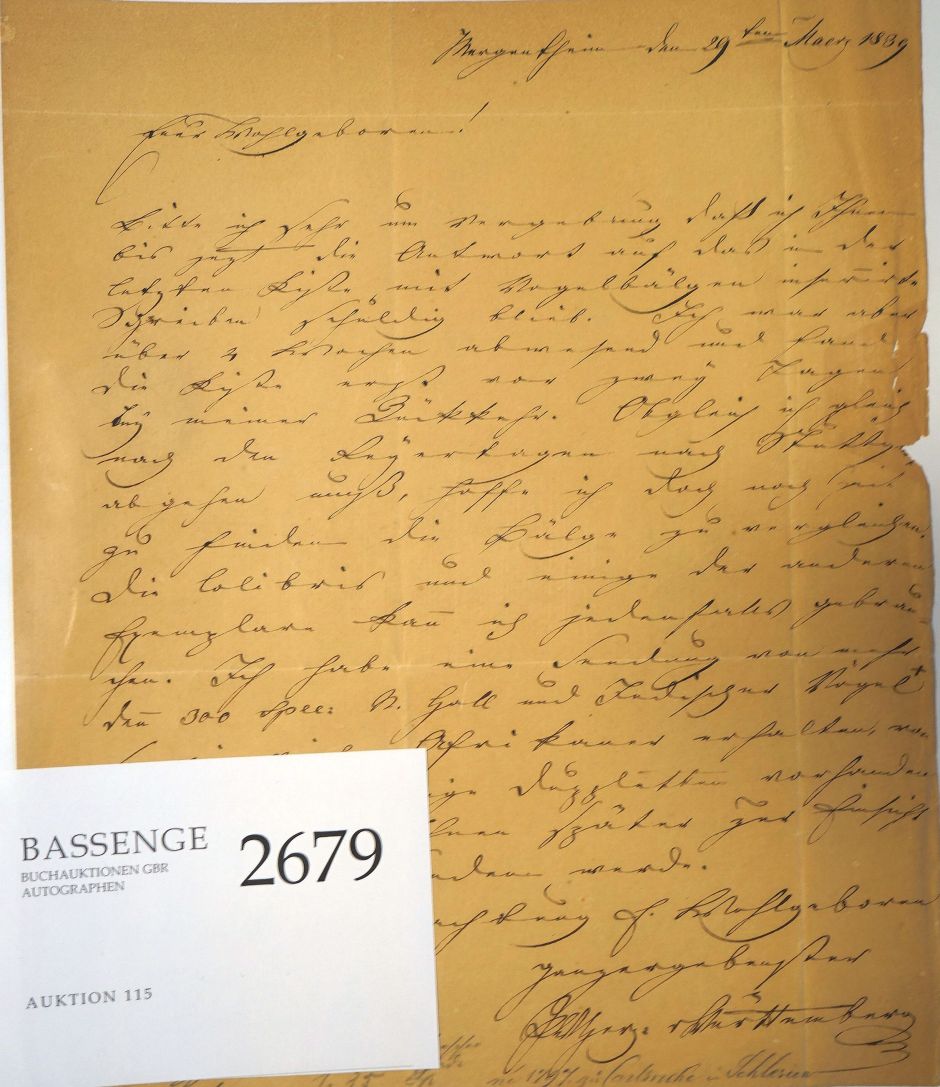 Mergentheim den 29ten Maerz 1839
Euer Wohlgeboren!
Bitte ich sehr um Vergebung daß ich Ihnen
bis jezt die Antwort auf das in der
letzten Kiste mit Vogelbälgen inserirte
Schreiben schuldig blieb. Ich war aber
über 2 Wochen abwesend und fand
die Kiste erst vor zwey Tagen
bey meiner Rückkehr. Obgleich ich gleich
nach den Feyertagen nach Stuttg.
abgehen muß, hoffe ich doch noch Zeit
zu finden die Bälge zu vergleichen.
Die Colibris und einige der anderen
Exemplare kann ich jedenfalls gebrau-
chen. Ich habe eine Sendung von mehr
denn 300 Spec: N. Holl und Indischer Vögel
Afrikaner erhalten, von
Dupletten vorhanden
Ihnen später zur Einsicht
senden werde.
achtung E. Wohlgeboren
ganzergebenster
PWHerz: v Württemberg
1797 zu Carlsruhe i. Schlesien
BASSENGE
BUCHAUKTIONEN GBR
AUTOGRAPHEN
2679
AUKTION 115